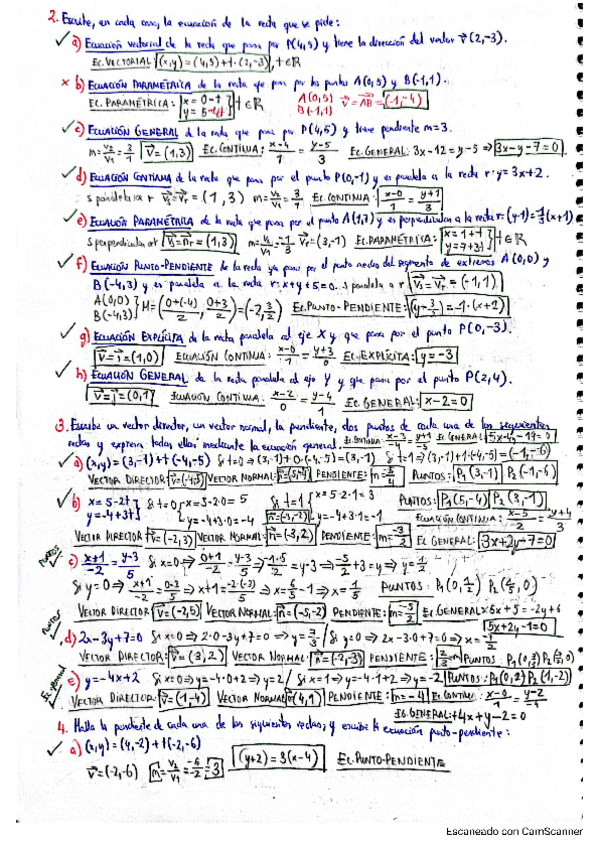 2. Escribe, en cada caso, la ecuación de la recta que se pide:
✓ a) Ecuación vectorial de la recta que pasa por P(4,5) y tiene la dirección del vector v(2,-3).
Ec. VECTORIAL (x,y) = (4,5)+t·(2,-3), t∈R
x b) ECUACIÓN PARAMÉTRICA de la recta que pasa por los puntos A(0,5) y B(-1,1).
Ec. PARAMÉTRICA: x=0-t y=5-4t t∈R A(0,5) B(-1,1) v=AB=(-1,-4)
✓ c) ECUACIÓN GENERAL de la recta que pasa por P(4,5) y tiene pendiente m=3.
m=v2/v1=3/1 v=(1,3) Ec. CONTINUA: x-4/1=y-5/3 Ec. GENERAL: 3x-12=y-5 ⇒ 3x-y-7=0
✓ d) ECUACIÓN CONTINUA de la recta que pasa por el punto P(0,-1) y es paralela a la recta r: y=3x+2.
s paralela a r vs=vr=(1,3) m=v2/v1=3/1 Ec. CONTINUA: x-0/1=y+1/3
✓ e) ECUACIÓN PARAMÉTRICA de la recta que pasa por el punto A(1,7) y es perpendicular a la recta r: (y-1)=-1/3(x+1)
s perpendicular a r vs=nr=(1,3) m=v2/v1=-1/3 vr=(3,-1) Ec. PARAMÉTRICA: x=1+t y=7+3t t∈R
✓ f) ECUACIÓN PUNTO-PENDIENTE de la recta que pasa por el punto medio del segmento de extremos A(0,0) y
B(-4,3) y es paralela a la recta r: x+y+5=0. s paralela a r vs=vr=(-1,1)
A(0,0) B(-4,3) M=(0+(-4)/2, 0+3/2)=(-2,3/2) Ec. PUNTO-PENDIENTE: (y-3/2)=-1·(x+2)
✓ g) ECUACIÓN EXPLÍCITA de la recta paralela al eje X y que pasa por el punto P(0,-3).
v=i=(1,0) ECUACIÓN CONTINUA: x-0/1=y+3/0 Ec. EXPLÍCITA: y=-3
✓ h) ECUACIÓN GENERAL de la recta paralela al eje Y y que pasa por el punto P(2,4).
v=j=(0,1) ECUACIÓN CONTINUA: x-2/0=y-4/1 Ec. GENERAL: x-2=0
3. Escribe un vector director, un vector normal, la pendiente, dos puntos de cada una de las siguientes
rectas y expresa todas ellas mediante la ecuación general. Ec. CONTINUA: x-3/-4=y-1/-5 Ec. GENERAL:
✓ a) (x,y)=(3,-1)+t(-4,-5) Si t=0⇒(3,-1)+0·(-4,-5)=(3,-1) Si t=1⇒(3,-1)+1·(-4,-5)=(-1,-6)
VECTOR DIRECTOR: VECTOR NORMAL: PENDIENTE: PUNTOS: P1(3,-1) P2(-1,-6)
✓ b) x=5-2t y=-4+3t Si t=0 x=5-2·0=5 y=-4+3·0=-4 Si t=1 x=5-2·1=3 y=-4+3·1=-1 PUNTOS: P1(5,-4) P2(3,-1)
ECUACIÓN CONTINUA: x-5/-2=y+4/3
VECTOR DIRECTOR: v=(-2,3) VECTOR NORMAL: n=(-3,-2) PENDIENTE: m=-3/2 Ec. GENERAL: 3x+2y-7=0
PUNTOS c) x+1/-2=y-3/5 Si x=0⇒0+1/-2=y-3/5⇒-1·5/2=y-3⇒-5/2+3=y⇒y=1/2
Si y=0⇒x+1/-2=0-3/5⇒x+1=-2·(-3)/5⇒x=6/5-1⇒x=1/5 PUNTOS: P1(0,1/2) P2(1/5,0)
VECTOR DIRECTOR: v=(-2,5) VECTOR NORMAL: n=(-5,-2) PENDIENTE: m=-5/2 Ec. GENERAL: 5x+5=-2y+6
5x+2y-1=0
PUNTOS d) 2x-3y+7=0 Si x=0⇒2·0-3y+7=0⇒y=7/3 / Si y=0⇒2x-3·0+7=0⇒x=-7/2
VECTOR DIRECTOR: v=(3,2) VECTOR NORMAL: n=(2,-3) PENDIENTE: 2/3 PUNTOS: P1(0,7/3)
Ec. general e) y=-4x+2 Si x=0⇒y=-4·0+2⇒y=2 / Si x=1⇒y=-4·1+2⇒y=-2 PUNTOS: P1(0,2) P2(1,-2)
VECTOR DIRECTOR: v=(1,-4) VECTOR NORMAL: (4,1) PENDIENTE: m=-4 Ec. CONTINUA: x-0/1=y-2/-4
Ec. GENERAL: 4x+y-2=0
4. Halla la pendiente de cada una de las siguientes rectas, y escribe la ecuación punto-pendiente:
✓ a) (x,y)=(4,-2)+t(-2,-6)
v=(-2,-6) m=v2/v1=-6/-2=3 (y+2)=3(x-4) Ec. PUNTO-PENDIENTE
Escaneado con CamScanner